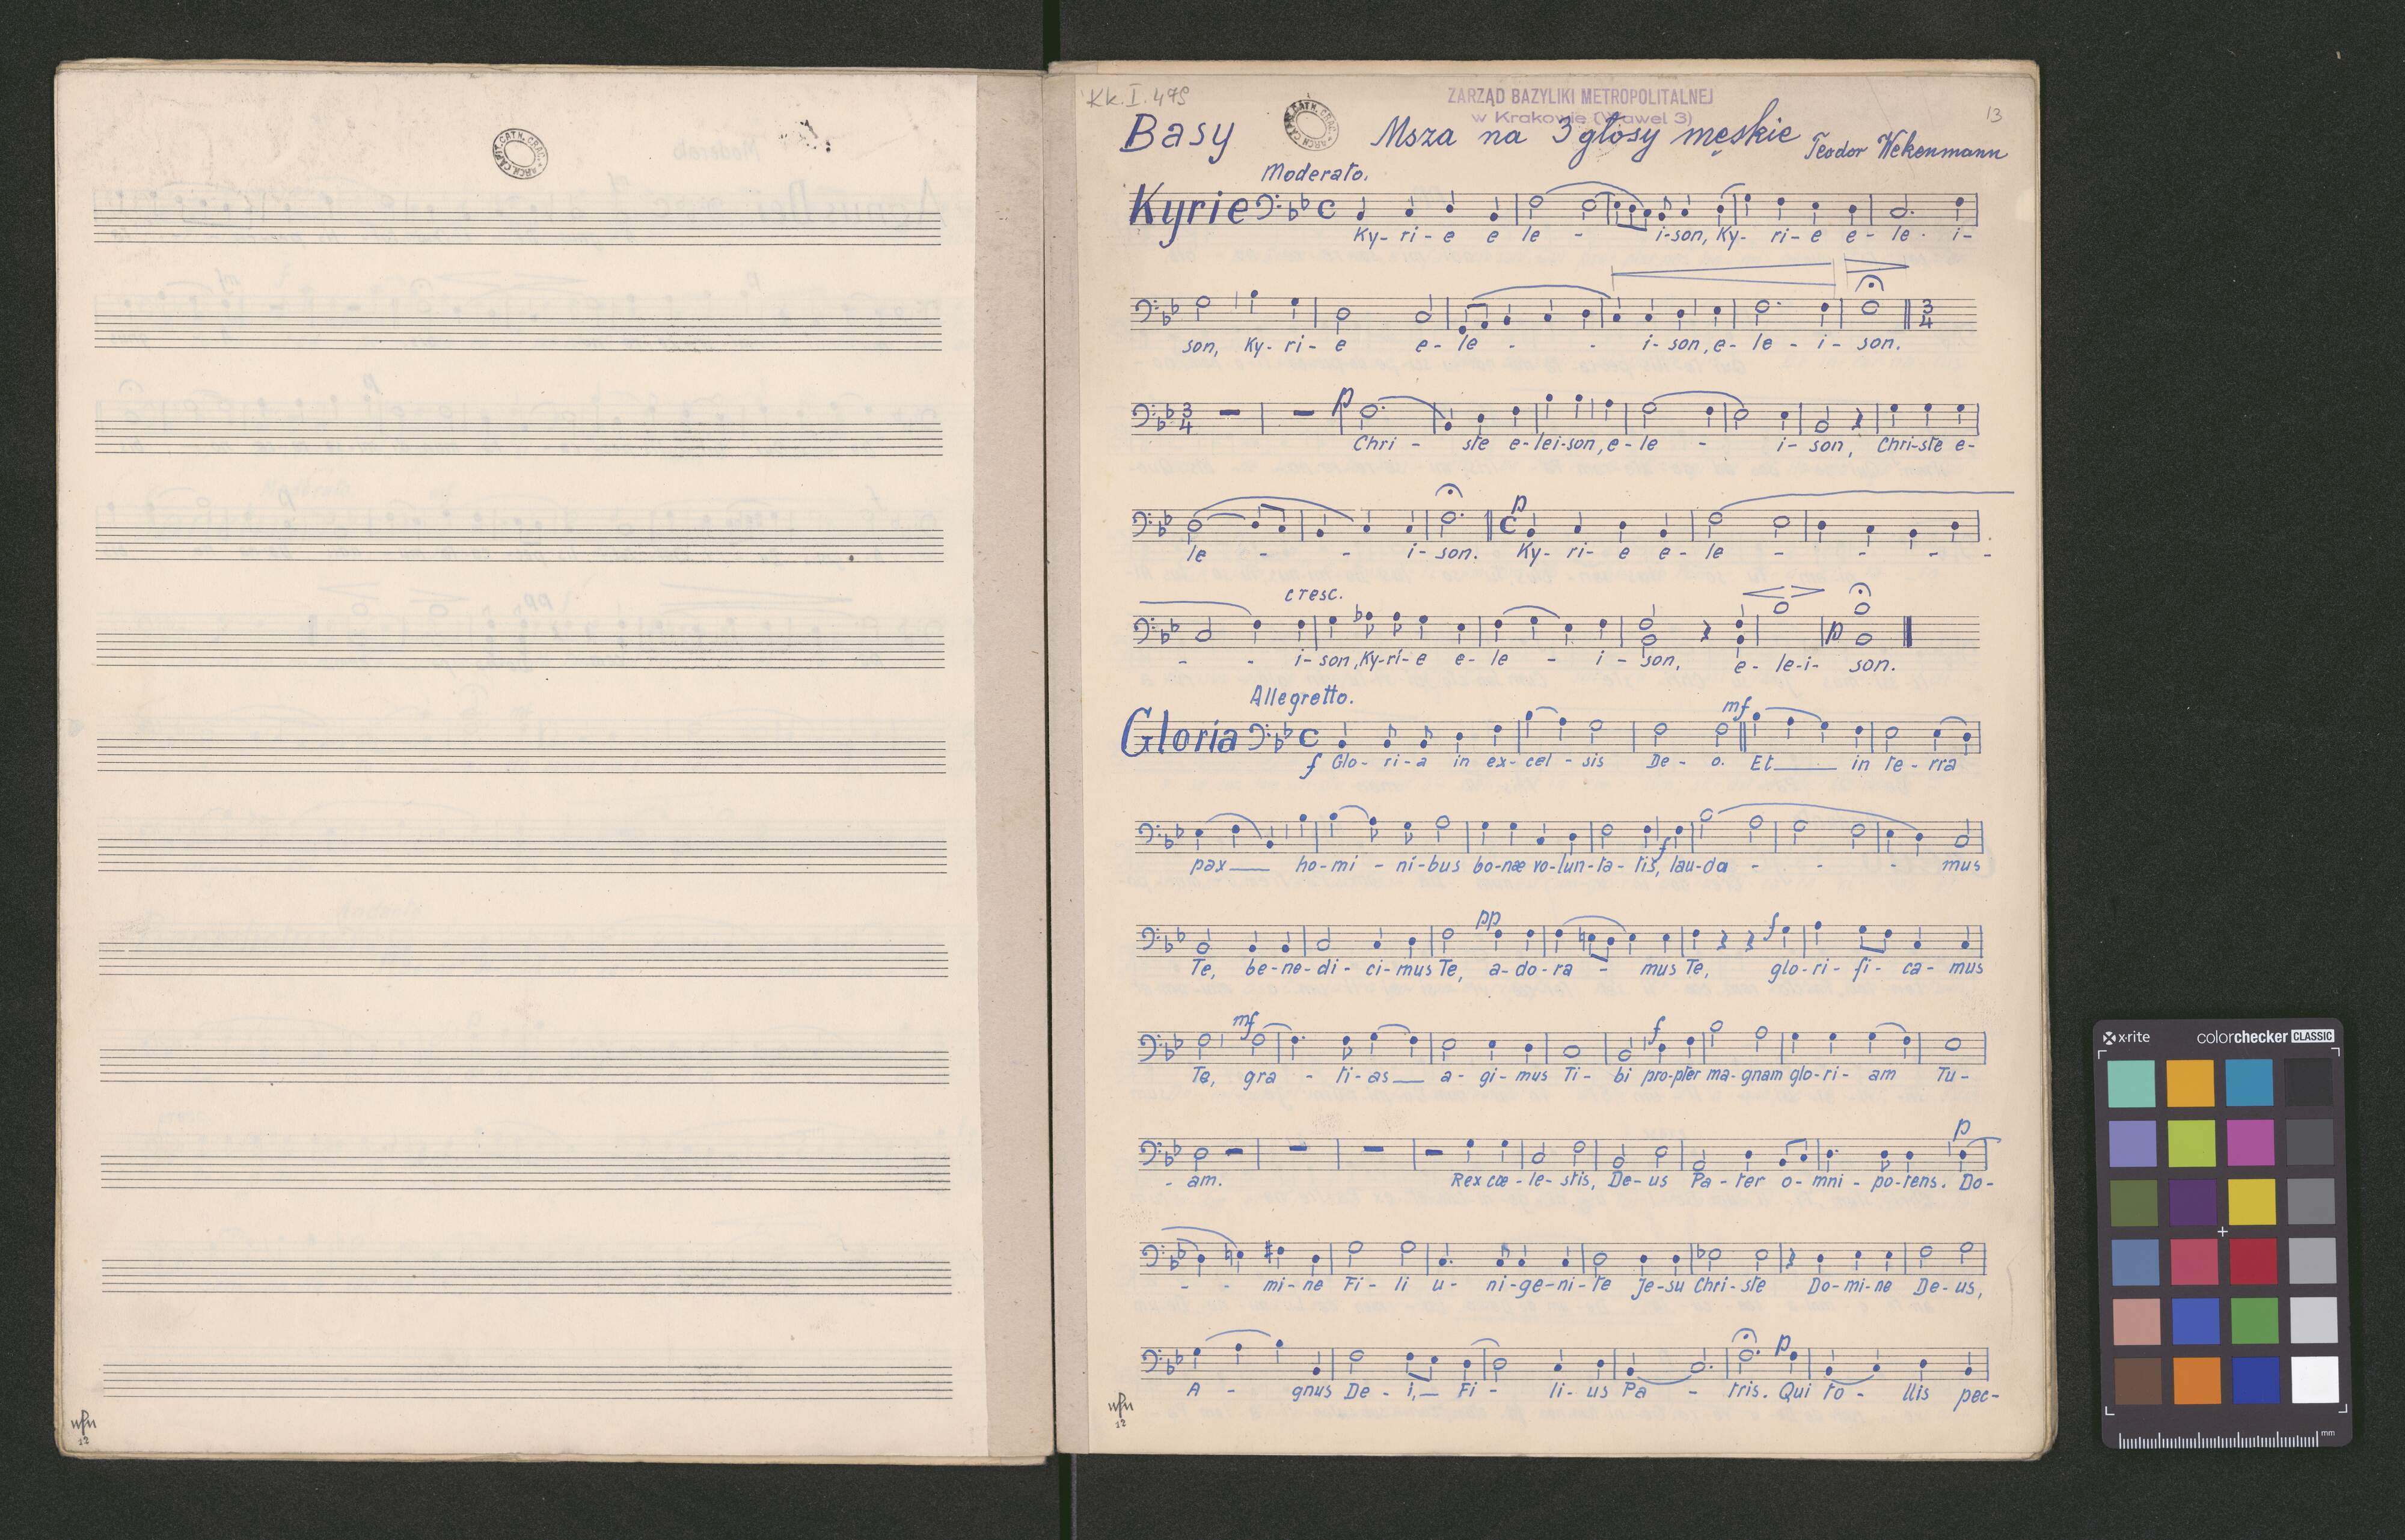 Kk. I. 475
ZARZĄD BAZYLIKI METROPOLITALNEJ
w Krakowie (Wawel 3)
13
Basy
Msza na 3 głosy męskie
Teodor Wekenmann
Moderato.
Kyrie
Ky- ri- e e le - i-son, Ky- ri- e e- le - i-
son, Ky- ri- e e- le - - i- son, e- le - i- son.
p
Chri - ste e-lei-son, e-le - i- son, Chri-ste e-
p
le - - i- son. Ky- ri- e e- le - - - -
cresc.
- - i- son, Ky-ri-e e- le - i - son, e- le-i- son.
p
Allegretto.
mf
Gloria
f Glo- ri-a in ex-cel - sis De - o. Et in te - rra
pax ho-mi - ni-bus bo-næ vo-lun-ta- tis, f lau-da - - - mus
pp f
Te, be-ne-di- ci-mus Te, a-do-ra - mus Te, glo-ri- fi- ca- mus
mf f
Te, gra - ti-as a- gi- mus Ti- bi pro-pter ma-gnam glo-ri- am Tu-
p
- am. Rex cœ-le-stis, De-us Pa-ter o-mni-po-tens. Do-
- - mi-ne Fi- li u- ni-ge-ni-te Je-su Chri-ste Do-mi-ne De-us,
p
A - gnus De - i, Fi - li- us Pa - tris. Qui to - llis pec-
12
12
x-rite colorchecker CLASSIC
mm